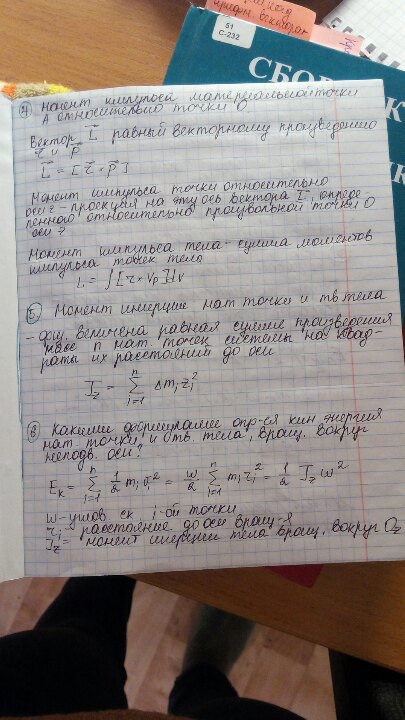 51
С-232
СБО
④ Момент импульса материальной точки
А относительно точки О
Вектор L равный векторному произведению
r и p
L = [r × p]
Момент импульса точки относительно
оси z - проекция на эту ось вектора L, опреде-
ленного относительно произвольной точки О
оси z
Момент импульса тела - сумма моментов
импульса точек тела
L = ∫[r × Vρ]dV
⑤ Момент инерции мат точки и тв тела
- физ. величена равная сумме произведения
масс n мат. точек системы на квад-
раты их расстояний до оси
J_z = Σ Δm_i r_i²
⑥ Какими формулами опр-ся кин энергия
мат. точки и тв. тела, вращ. вокруг
неподв. оси?
E_к = Σ 1/2 m_i υ_i² = w/2 Σ m_i r_i² = 1/2 J_z w²
w - углов ск. i-ой точки
r_i - расстояние до оси вращ-я
J_z = момент инерции тела вращ. вокруг O_z